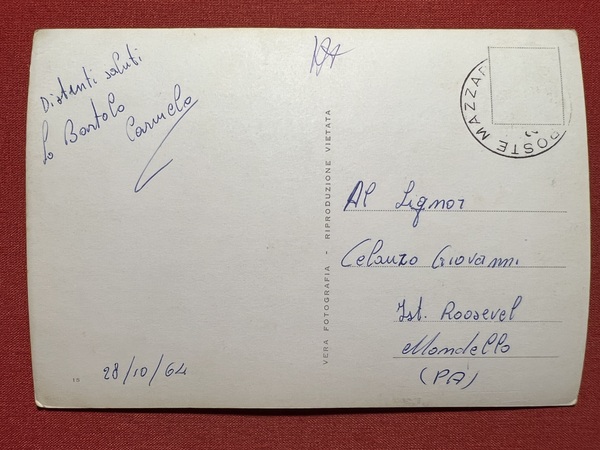 Distinti saluti
Lo Bartolo
Carmelo
28/10/64
18
VERA FOTOGRAFIA - RIPRODUZIONE VIETATA
POSTE MAZZAR
Al Signor
Celauzo Giovanni
Ist. Roosevel
Mondello
(PA)